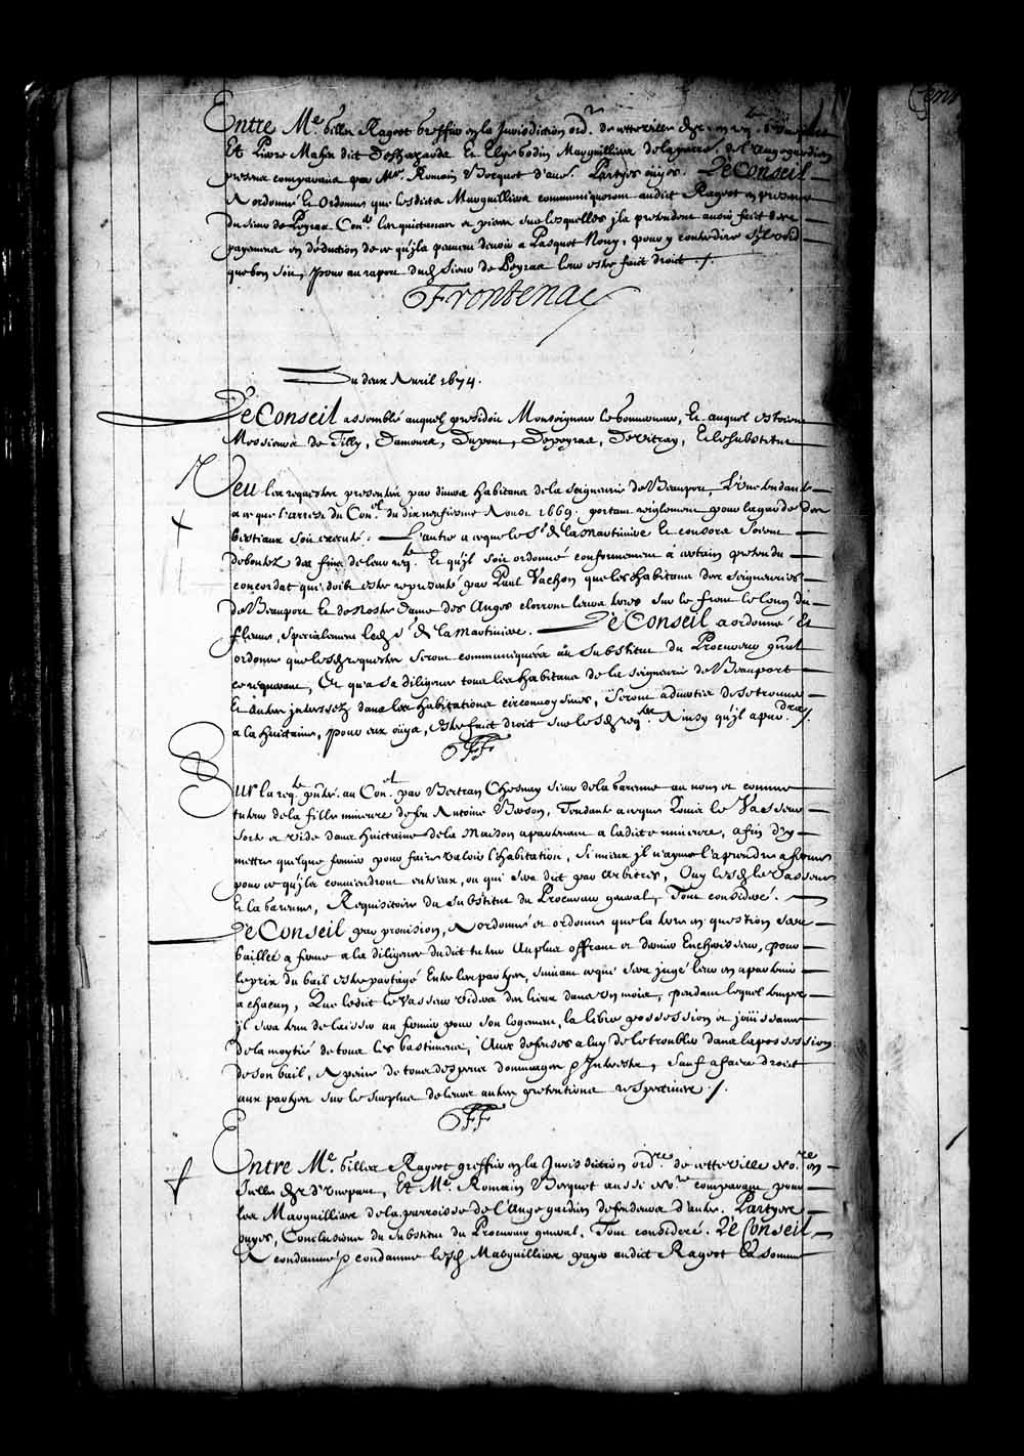 Entre Me. Gilles Rageot Greffier en la Jurisdiction ordre. de cette ville
Et Pierre Mahu dit Deshazards Et Elye Godin Marguilliers de la paroisse de l'ange gardien
presens comparans par Me. Romain Becquet d'autre. Partyes ouyes. Le Conseil
A ordonné Et Ordonne que lesdits Marguilliers communiqueront audict Rageot en presence
du sieur de Peyras Coner. les quittances et pieces sur lesquelles ils pretendent avoir faict des
payemens en déduction de ce qu'ils peuvent devoir a Pasquet Nony, pour y contredire s'il void
que bon soit, pour au raport dud. Sieur de Peyras leur estre faict droict ./.
Frontenac
Du deux Avril 1674.
Le Conseil assemblé auquel presidoit Monseigneur le Gouverneur, Et auquel estoient
Messieurs de Tilly, Damours, Dupont, Depeyras, Devitray, Et le substitut
Veu les requestes presentées par divers habitans de la Seigneurie de Beauport, L'une tendante
a ce que l'arrest du Conel. du dix neufiesme Aoust 1669. portant reglement pour la garde des
bestiaux soit executé. L'autre a ce que le Sr. de la Martiniere Et consors soient
deboutez des fins de leur reqte. Et qu'il soit ordonné conformement a certain pretendu
concordat qui doibt estre representé par Paul Vachon que les habitans des Seigneuries
de Beauport Et de nostre dame des Anges clorront leurs terres sur le front le long du
fleuve, specialement led. Sr. de la Martiniere. Le Conseil a ordonné Et
ordonne que lesd. requestes seront communiquées au Substitut du Procureur gnal
ce requerant, Et qu'a sa diligence tous les habitans de la seigneurie de Beauport
Et autres interessez dans les habitations circonvoysines, Seront advertis de se trouver
a la huictaine, pour eux ouys, Estre faict droict sur lesd. reqtes. Ainsy qu'il apardra ./.
FF
Sur la reqte. pntée. au Conel. par Bertran Chesnay sieur de la Garenne au nom et comme
tuteur de la fille mineure de feu Antoine Berson, Tendante a ce que Louis le Vasseur
sorte et vide dans huictaine de la Maison apartenant a ladicte mineure, afin d'y
mettre quelque fermier pour faire valoir l'habitation, si mieux il n'ayme l'aprendre a ferme
pour ce qu'ils conviendront entr'eux, ou qui sera dict par arbitres, Ouy lesd. le Vasseur
Et la Garenne, Requisitoire du substitut du Procureur general, Tout consideré.
Le Conseil par provision, A ordonné et ordonne que la terre en question sera
baillée a ferme a la diligence dudict tuteur au plus offrant et dernier Encherisseur, pour
le prix du bail estre partagé Entre les partyes, suivant ce qui sera jugé leur en apartenir
a chacun, Que ledict le Vasseur videra des lieux dans un mois, pendant lequel temps
il sera tenu de laisser au fermier pour son logement, la libre possession et jouissance
de la moytié de tous les bastimens, Avec defenses a luy de le troubler dans la possession
de son bail, A peine de tous despens dommages & Interests, Sauf a faire droict
aux partyes sur le surplus de leurs autres pretentions respectives ./.
FF
Entre Me. Gilles Rageot greffier en la Jurisdiction ordre. de cette ville Nore. en
Icelle d'une part, Et Me. Romain Becquet aussi Nore. comparant pour
les Marguilliers de la parroisse de l'Ange gardien defendeurs d'autre. Partyes
ouyes, Conclusions du substitut du Procureur general. Tout consideré. Le Conseil
A condamné & condamne lesd. Marguilliers payer audict Rageot la somme